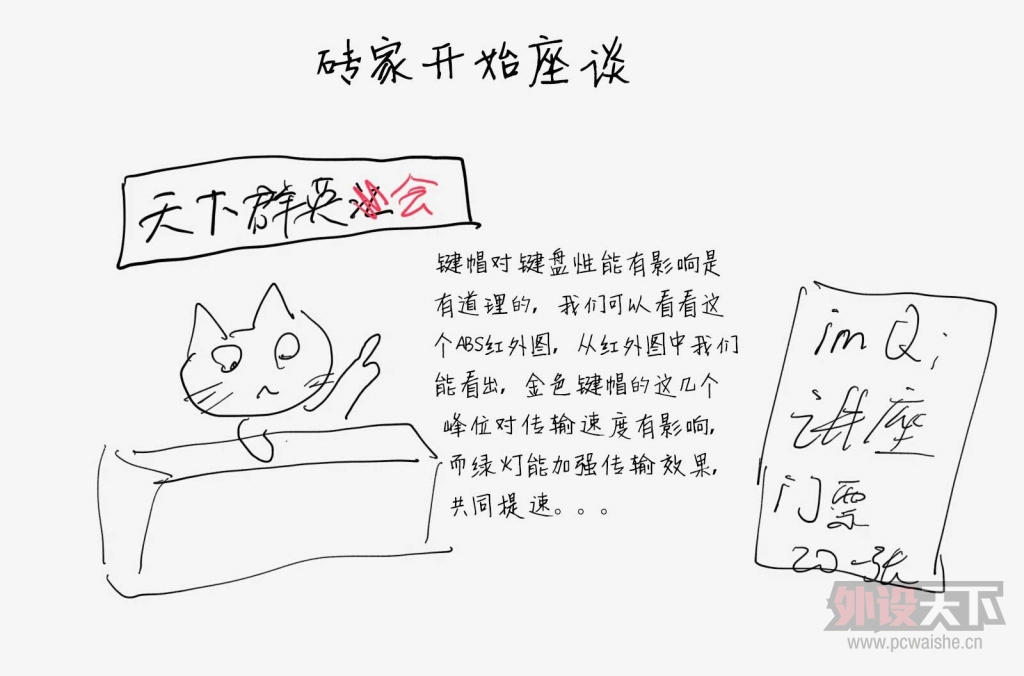 砖家开始座谈
天下群英会
键帽对键盘性能有影响是
有道理的,我们可以看看这
个ABS红外图,从红外图中我们
能看出,金色键帽的这几个
峰位对传输速度有影响,
而绿灯能加强传输效果,
共同提速。。。
im Qi
讲座
门票
20一张
外设天下
www.pcwaishe.cn